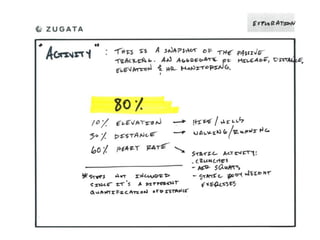 EXPLORATION
ZUGATA
"ACTIVITY" : THIS IS A SNAPSHOT OF THE PASSIVE
TRACKING. AN AGGREGATE OF MILEAGE, DISTANCE,
ELEVATION & HR MONITORING.
80%
10% ELEVATION → HIKE / HILLS
30% DISTANCE → WALKING / RUNNING
60% HEART RATE → STATIC ACTIVITY:
- CRUNCHES
- AIR SQUATS
- STATIC BODY WEIGHT
EXERCISES
* STEPS NOT INCLUDED
SINCE IT'S A DIFFERENT
QUANTIFICATION OF DISTANCE